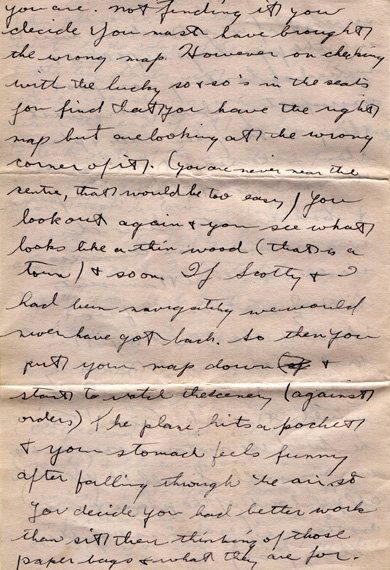 you are. not finding it you
decide you must have brought
the wrong map. However on checking
with the lucky so & so's in the seats
you find that you have the right
map but are looking at the wrong
corner of it. (you are never near the
centre, that would be too easy) you
look out again & you see what
looks like a thin wood (that is a
town) & so on. If Scotty & I
had been navigating we would
never have got back. So then you
put your map down &
start to watch the scenery (against
orders) the plane hits a pocket
& your stomach feels funny
after falling through the air. so
you decide you had better work
than sit there thinking of those
paper bags & what they are for.